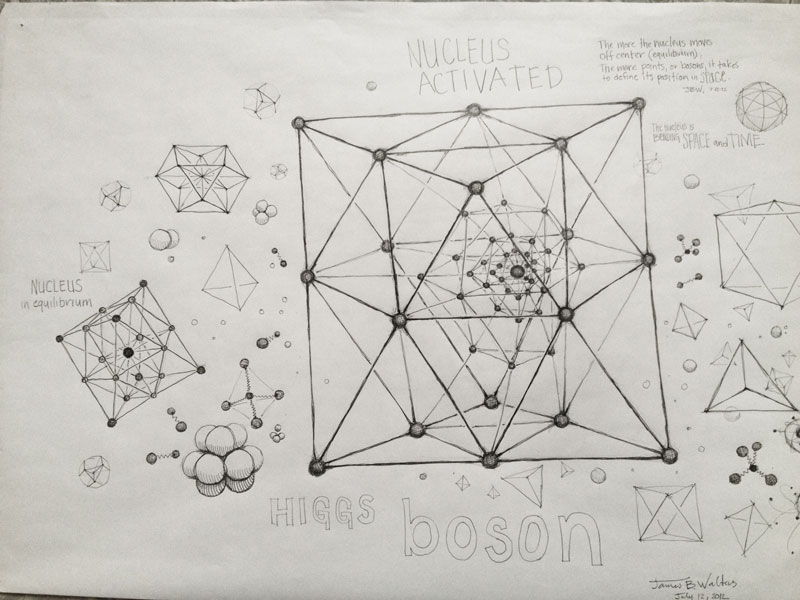 NUCLEUS
ACTIVATED
The more the nucleus moves
off center (equilibrium),
The more points, or bosons, it takes
to define its position in SPACE.
The nucleus is
BENDING SPACE and TIME
NUCLEUS
in equilibrium
HIGGS boson
James B. Walters
July 12, 2012